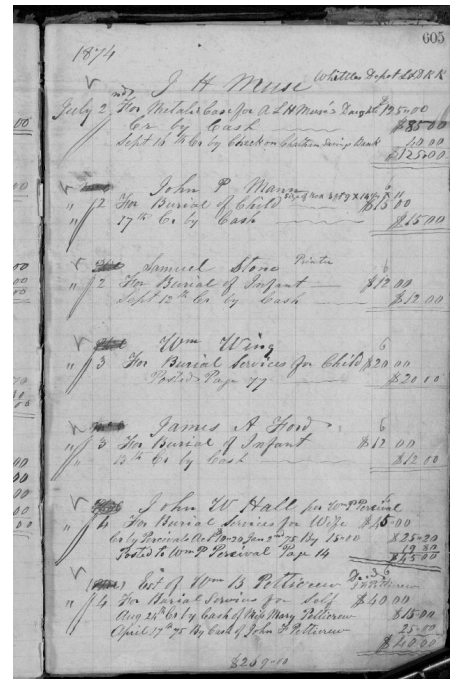 605
1874
J H Muse Whittles Depot
July 2 For Metalic Case for A L H Muse's Daught $125.00
Cr by Cash $85.00
Sept 14th Cr by Check on Savings Bank 40.00
$125.00
John P Mann
" 2 For Burial of Child $15.00
17th Cr by Cash $15.00
Samuel Stone Printer 6
" 2 For Burial of Infant $12.00
Sept 12th Cr by Cash $12.00
Wm Wing 6
" 3 For Burial Services for Child $20.00
Posted Page 77 $20.00
James A Ford 6
" 3 For Burial of Infant $12.00
13th Cr by Cash $12.00
John W Hall per Wm P Percival
" 4 For Burial Services for Wife $45.00
Cr by Percival Jan 2nd 75 By 15.00 $25.20
Posted to Wm P Percival Page 14 19.80
$45.00
Est of Wm B Petticrew
" 4 For Burial Services for Self $40.00
Aug 24th Cr by Cash of Miss Mary Petticrew $15.00
April 17th 75 By Cash of John F Petticrew 25.00
$40.00
$269.10